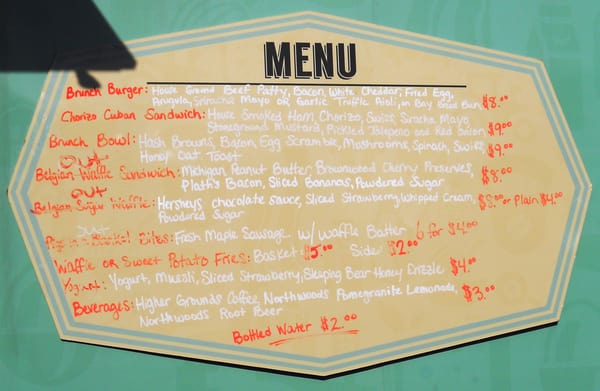 MENU
Brunch Burger: House Ground Beef Patty, Bacon, White Cheddar, Fried Egg,
Arugula, Sriracha Mayo or Garlic Truffle Aioli, on Bay Bread Bun $8.00
Chorizo Cuban Sandwich: House Smoked Ham, Chorizo, Swiss, Sriracha Mayo,
Stoneground Mustard, Pickled Jalapeno and Red Onion $9.00
Brunch Bowl: Hash Browns, Bacon, Egg Scramble, Mushrooms, Spinach, Swiss,
Honey Oat Toast $9.00
OUT
Belgian Waffle Sandwich: Michigan Peanut Butter, Brownwood Cherry Preserves,
Plath's Bacon, Sliced Bananas, Powdered Sugar $8.00
OUT
Belgian Sugar Waffle: Hersheys chocolate sauce, Sliced Strawberry, Whipped Cream, $8.00 or Plain $4.00
Powdered Sugar
OUT
Pig in a Basket Bites: Fresh Maple Sausage w/ Waffle Batter 6 for $4.00
Waffle or Sweet Potato Fries: Basket $5.00 Side $2.00
Yogurt: Yogurt, Muesli, Sliced Strawberry, Sleeping Bear Honey Drizzle $4.00
Beverages: Higher Grounds Coffee, Northwoods Pomegranite Lemonade, $3.00
Northwoods Root Beer
Bottled Water $2.00